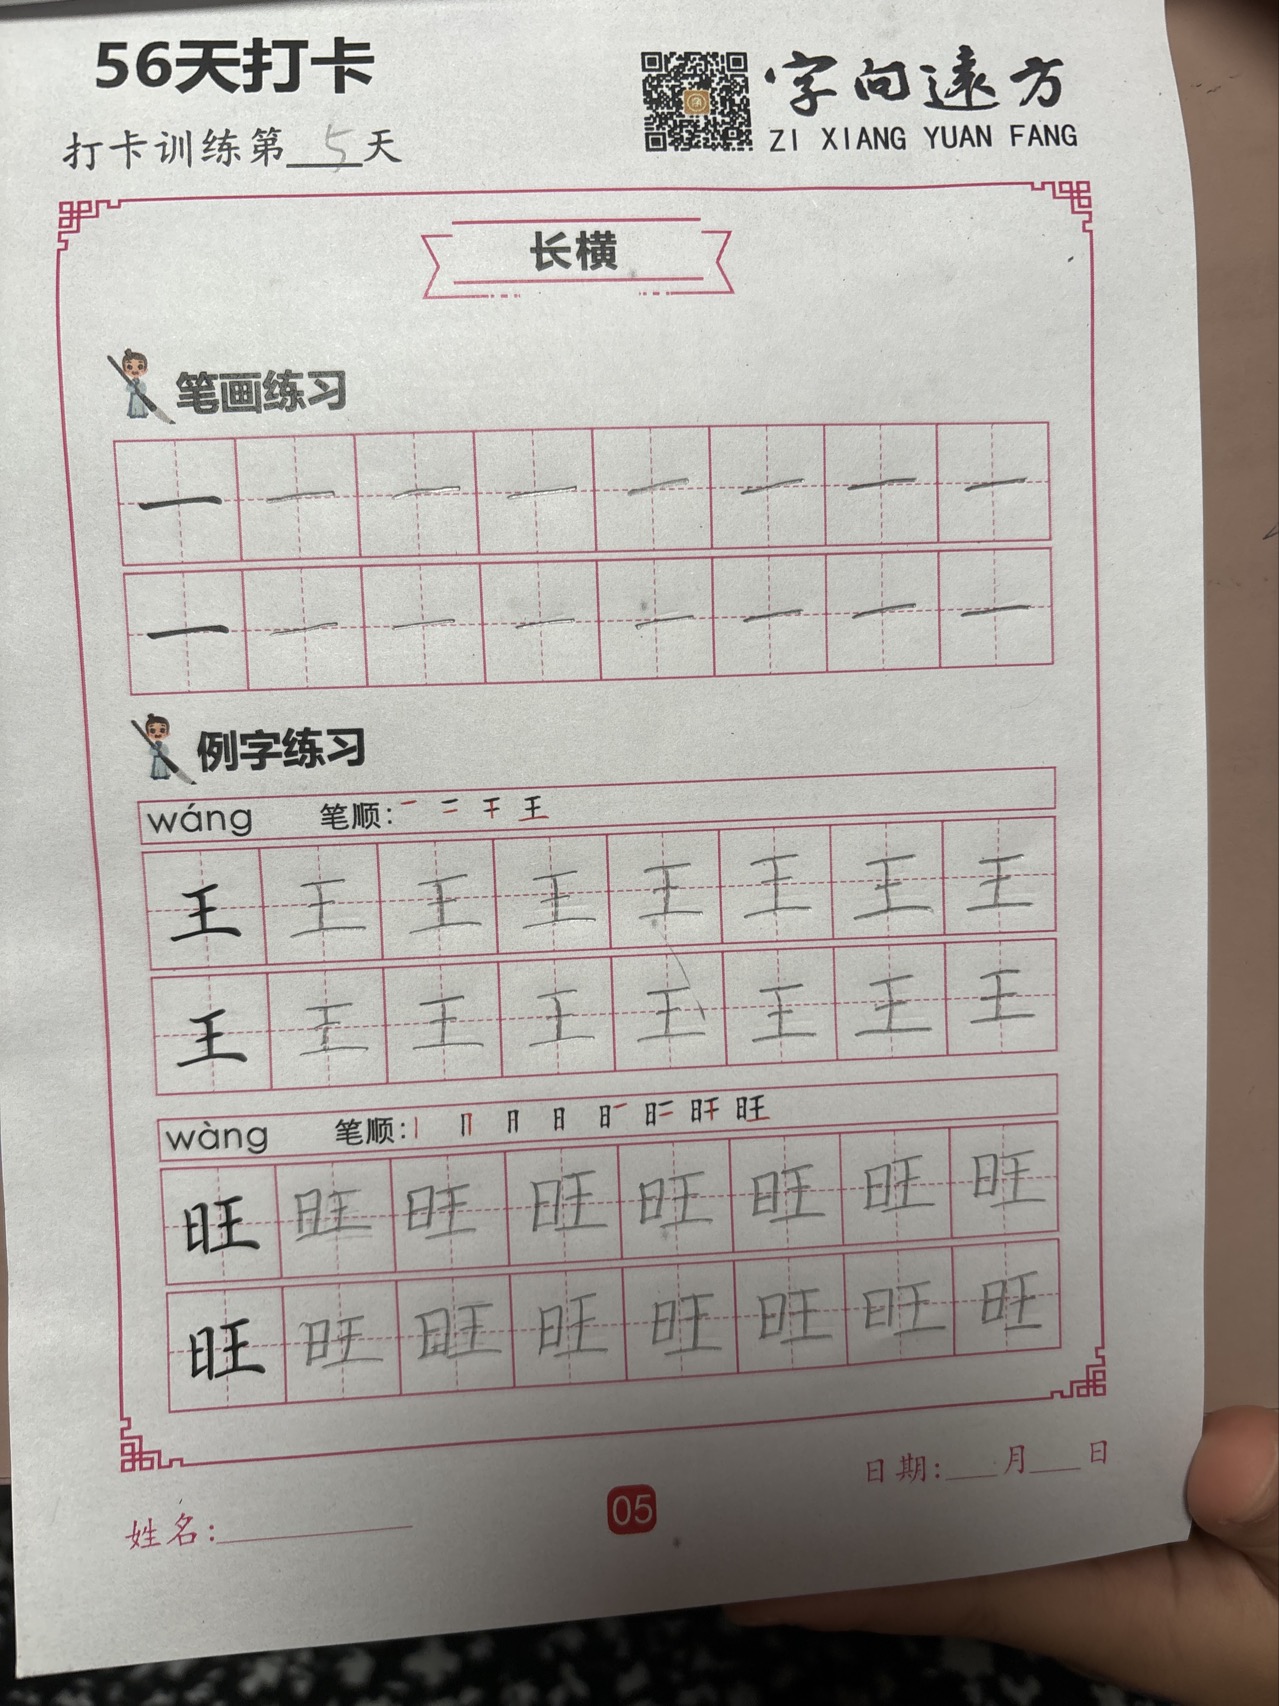 56天打卡
字向远方
ZI XIANG YUAN FANG
打卡训练第5天
长横
笔画练习
一 一 一 一 一 一 一 一
一 一 一 一 一 一 一 一
例字练习
wáng 笔顺: 王
王 王 王 王 王 王 王 王
王 王 王 王 王 王 王 王
wàng 笔顺: 旺
旺 旺 旺 旺 旺 旺 旺 旺
旺 旺 旺 旺 旺 旺 旺 旺
日期:___月___日
姓名:
05